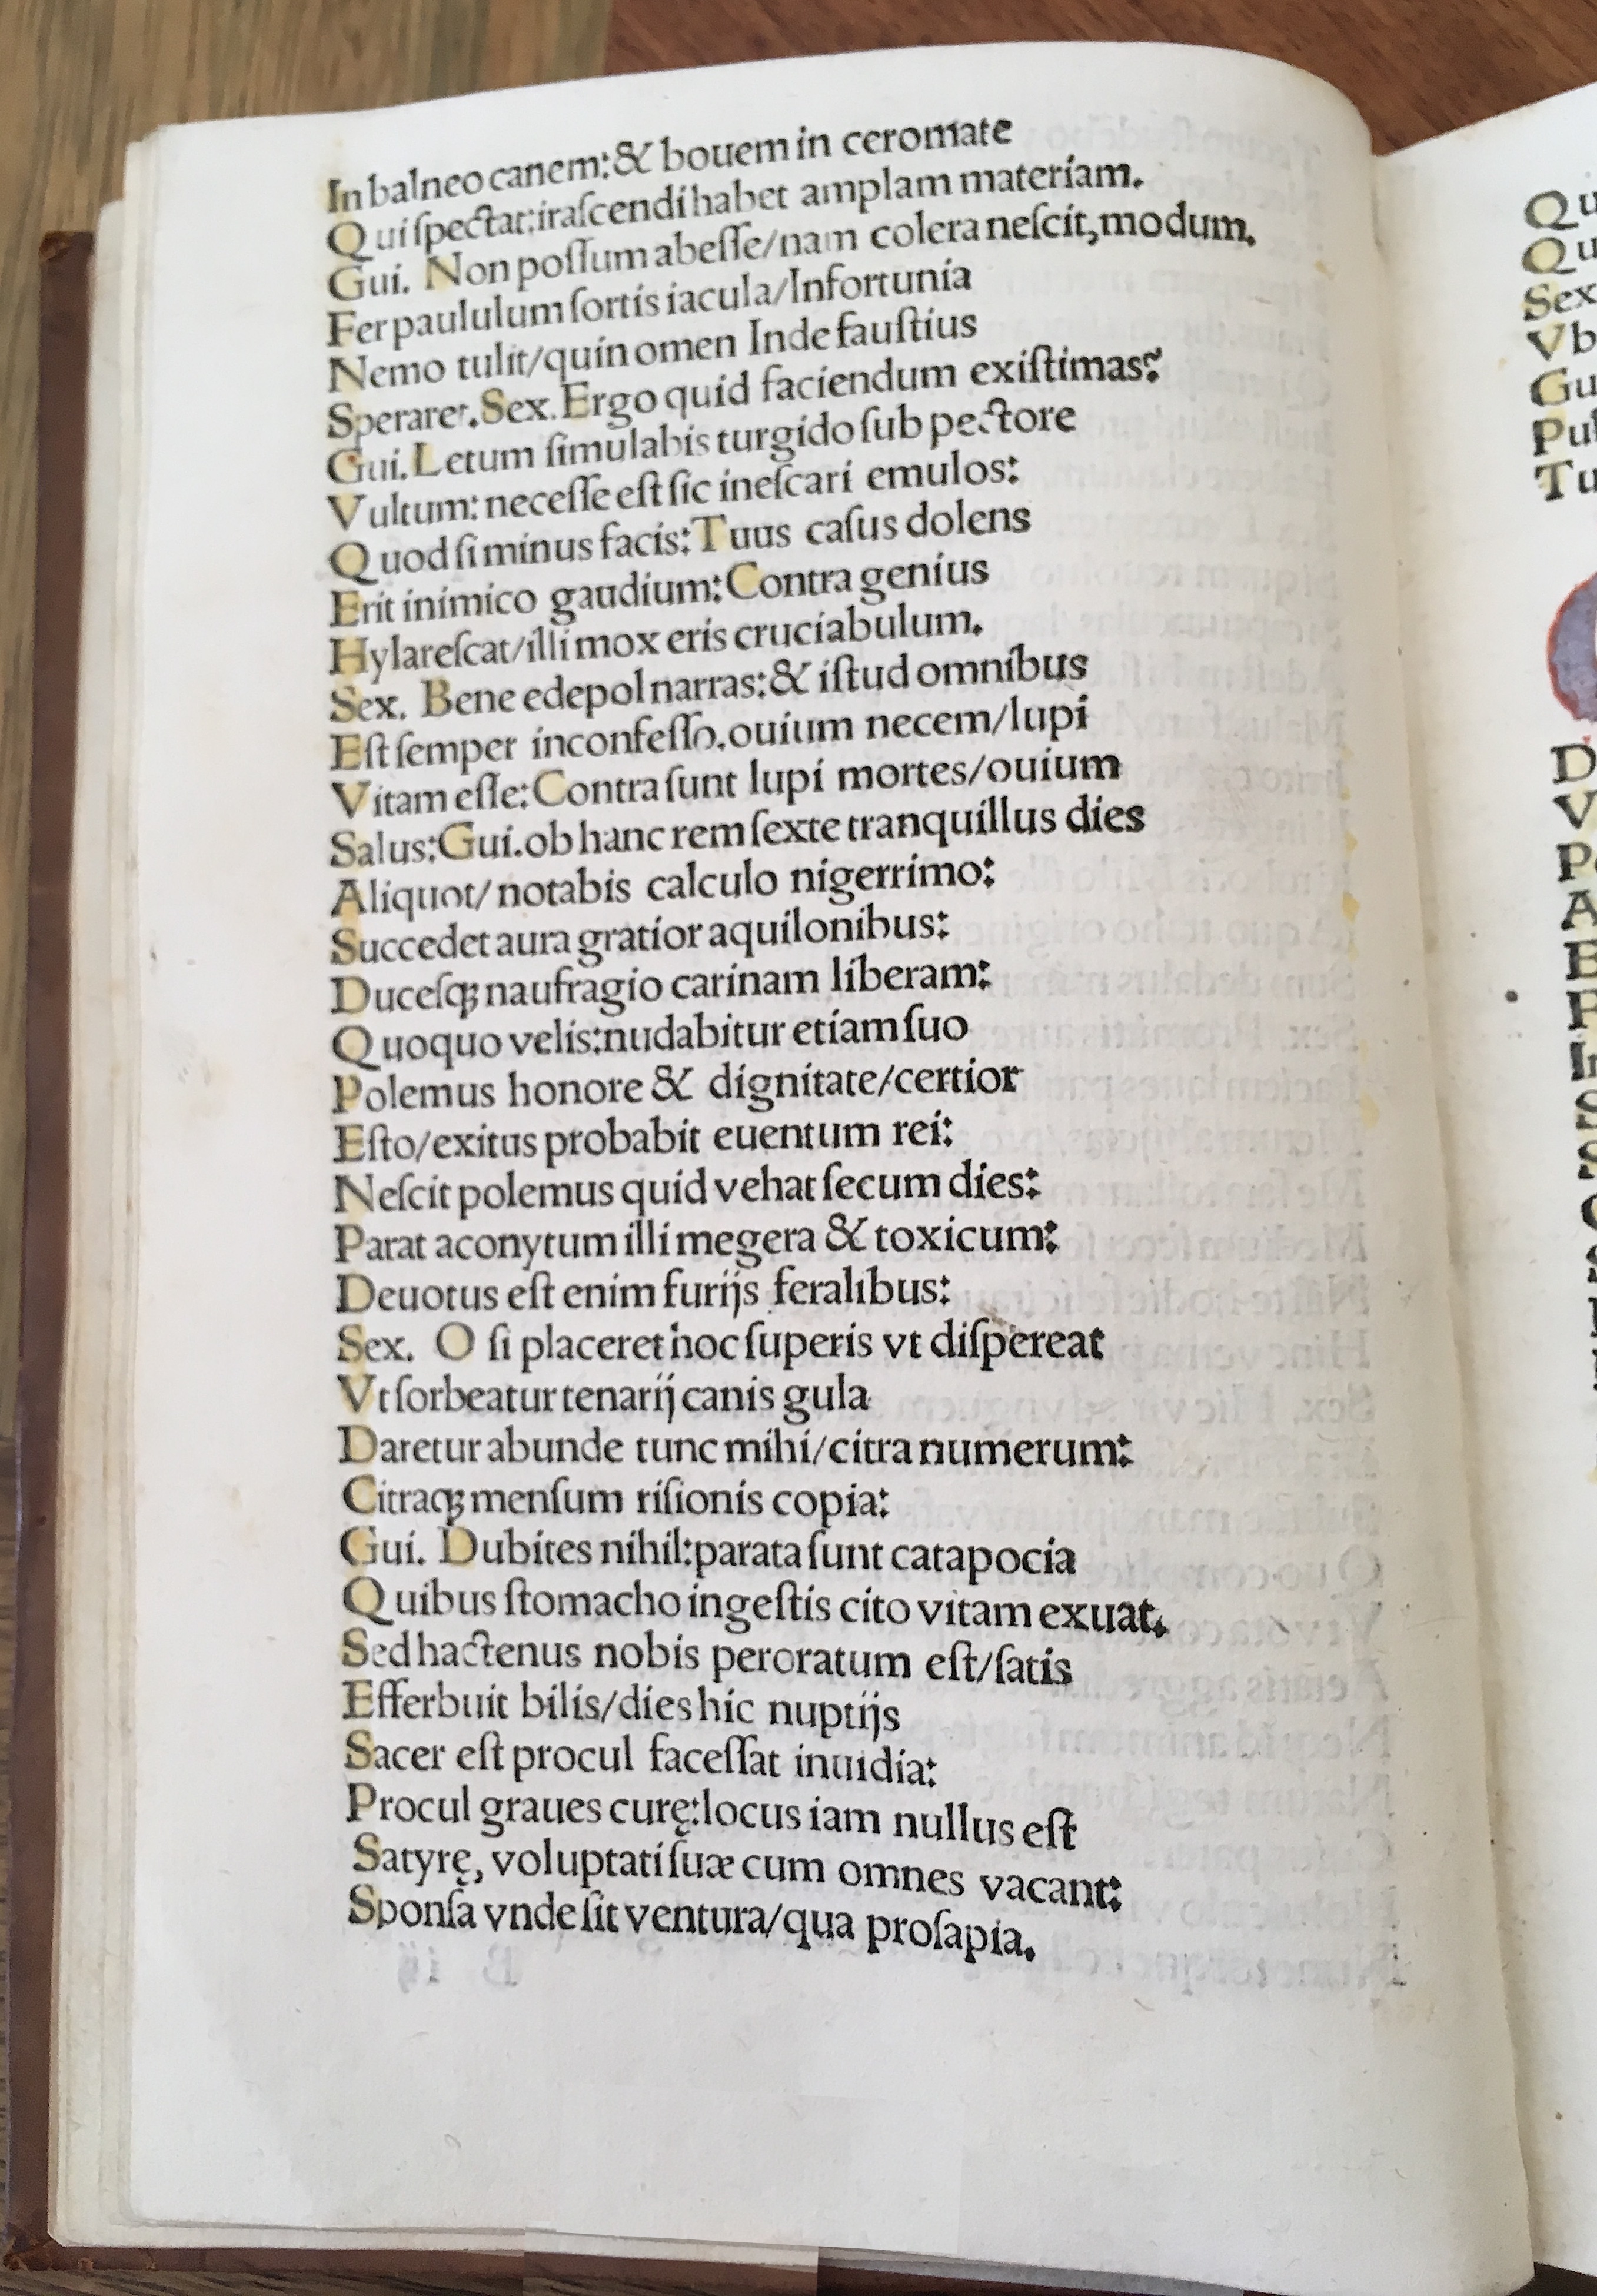 In balneo canem: & bouem in ceromate
Qui ſpectat: iraſcendi habet amplam materiam.
Gui. Non poſſum abeſſe/nam colera neſcit, modum.
Fer paululum ſortis iacula/Infortunia
Nemo tulit/quin omen Inde fauſtius
Speraret. Sex. Ergo quid faciendum exiſtimas?
Gui. Letum ſimulabis turgido ſub pectore
Vultum: neceſſe eſt ſic ineſcari emulos:
Quod ſi minus facis: Tuus caſus dolens
Erit inimico gaudium: Contra genius
Hylareſcat/illi mox eris cruciabulum.
Sex. Bene edepol narras: & iſtud omnibus
Eſt ſemper inconfeſſo. ouium necem/lupi
Vitam eſſe: Contra ſunt lupi mortes/ouium
Salus: Gui. ob hanc rem ſexte tranquillus dies
Aliquot/notabis calculo nigerrimo:
Succedet aura gratior aquilonibus:
Duceſqꝫ naufragio carinam liberam:
Quoquo velis: nudabitur etiam ſuo
Polemus honore & dignitate/certior
Eſto/exitus probabit euentum rei:
Neſcit polemus quid vehat ſecum dies:
Parat aconytum illi megera & toxicum:
Deuotus eſt enim furijs feralibus:
Sex. O ſi placeret hoc ſuperis vt diſpereat
Vt ſorbeatur tenarij canis gula
Daretur abunde tunc mihi/citra numerum:
Citraqꝫ menſum riſionis copia:
Gui. Dubites nihil: parata ſunt catapocia
Quibus ſtomacho ingeſtis cito vitam exuat.
Sed hactenus nobis peroratum eſt/ſatis
Efferbuit bilis/dies hic nuptijs
Sacer eſt procul faceſſat inuidia:
Procul graues curę: locus iam nullus eſt
Satyrę, voluptati ſuæ cum omnes vacant:
Sponſa vnde ſit ventura/qua proſapia.
Qu
Qu
Sex
Vb
Gu
Pul
Tu
D
V
A
E